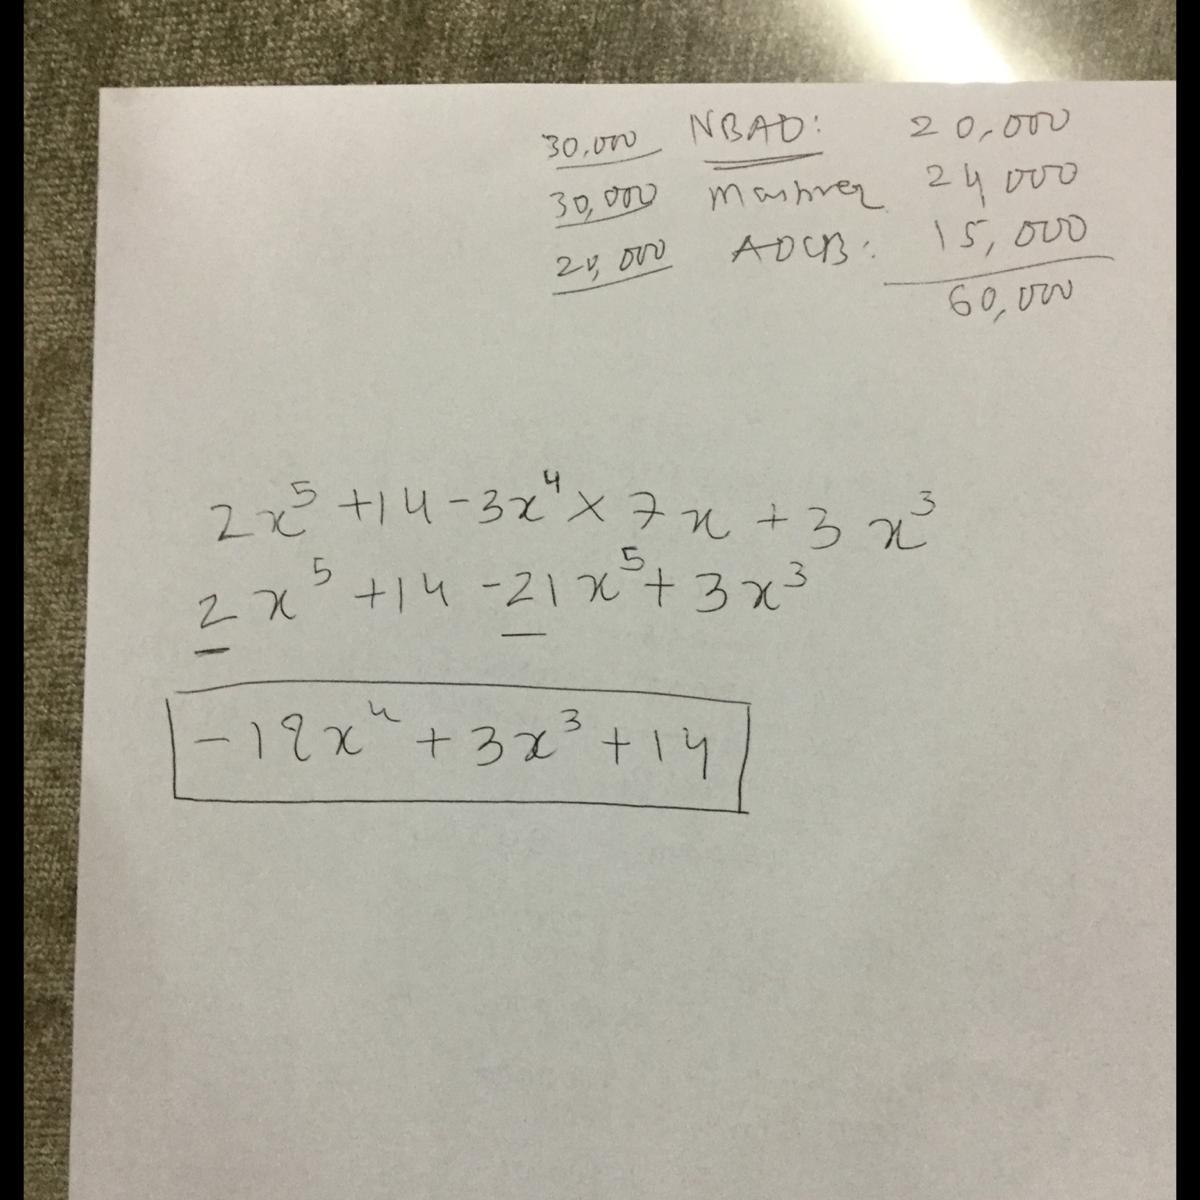 30,000 NBAD: 20,000
30,000 Mashreq 24000
20,000 ADCB: 15,000
60,000
2x⁵ +14 -3x⁴ × 7x + 3x³
2x⁵ +14 -21x⁵ + 3x³
-18x⁴ + 3x³ + 14